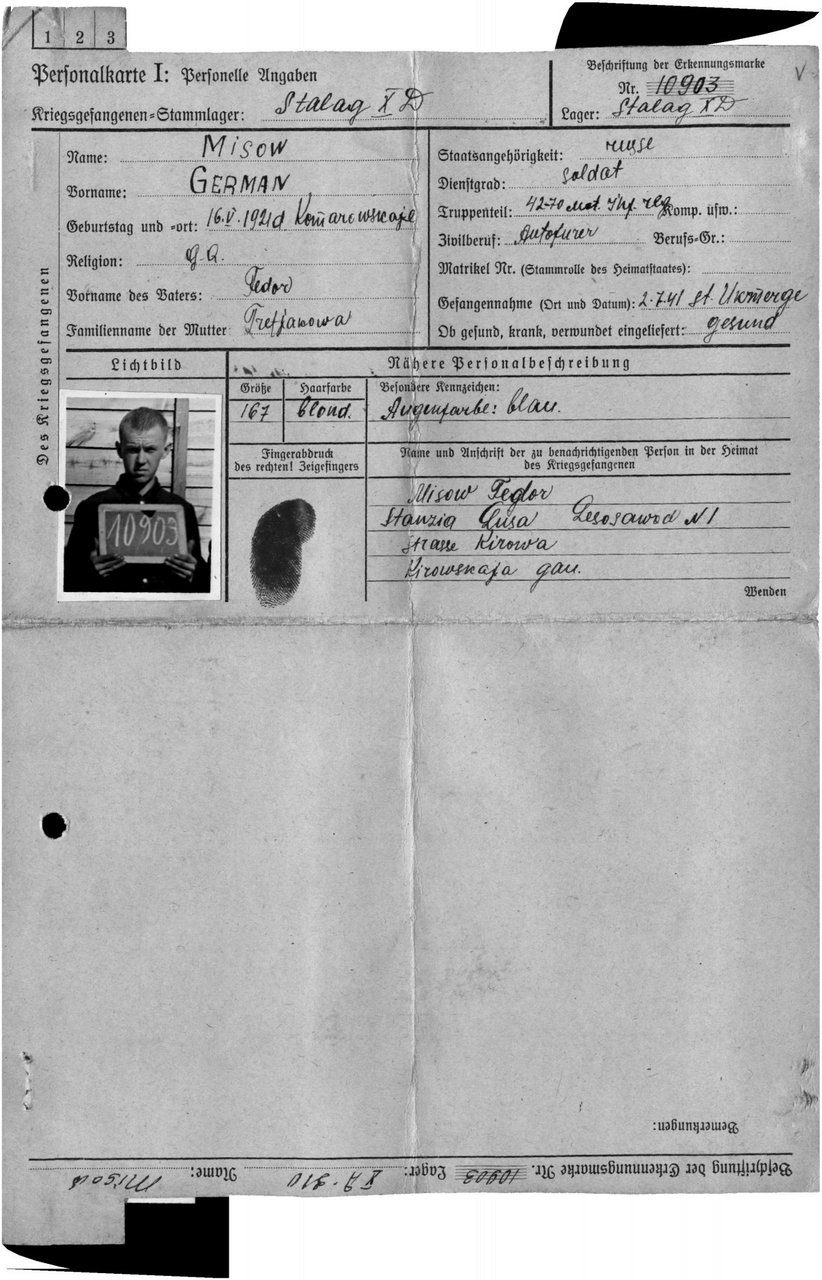 1 2 3
Personalkarte I: Personelle Angaben
Kriegsgefangenen-Stammlager: Stalag X D
Beschriftung der Erkennungsmarke
Nr. 10903
Lager: Stalag X D
V
Des Kriegsgefangenen
Name: MISOW
Vorname: GERMAN
Geburtstag und -ort: 16.V.1921
Religion:
Vorname des Vaters: Fedor
Familienname der Mutter: Tretjakowa
Staatsangehörigkeit: russe
Dienstgrad: soldat
Truppenteil: 4270 Mot. Komp. usw.:
Zivilberuf: Autofurer Berufs-Gr.:
Matrikel Nr. (Stammrolle des Heimatstaates):
Gefangennahme (Ort und Datum): 2.7.41 st. Ukmerge
Ob gesund, krank, verwundet eingeliefert: gesund
Lichtbild
Nähere Personalbeschreibung
Größe Haarfarbe Besondere Kennzeichen:
167 blond. Augenfarbe: blau.
Fingerabdruck
des rechten! Zeigefingers
Name und Anschrift der zu benachrichtigenden Person in der Heimat
des Kriegsgefangenen
Misow Fedor
Stanzia Lusa Lesosawod N 1
Strasse Kirowa
Kirowskaja gau.
10903
Wenden
Bemerkungen:
Beschriftung der Erkennungsmarke Nr. 10903 Lager: Name: Misow